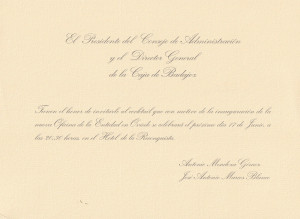 El Presidente del Consejo de Administración
y el Director General
de la Caja de Badajoz
Tienen el honor de invitarle al cocktail que con motivo de la inauguración de la
nueva Oficina de la Entidad en Oviedo se celebrará el próximo día 10 de Junio, a
las 20,30 horas, en el Hotel de la Reconquista.
Antonio Gómez
José Antonio Marcos Blanco